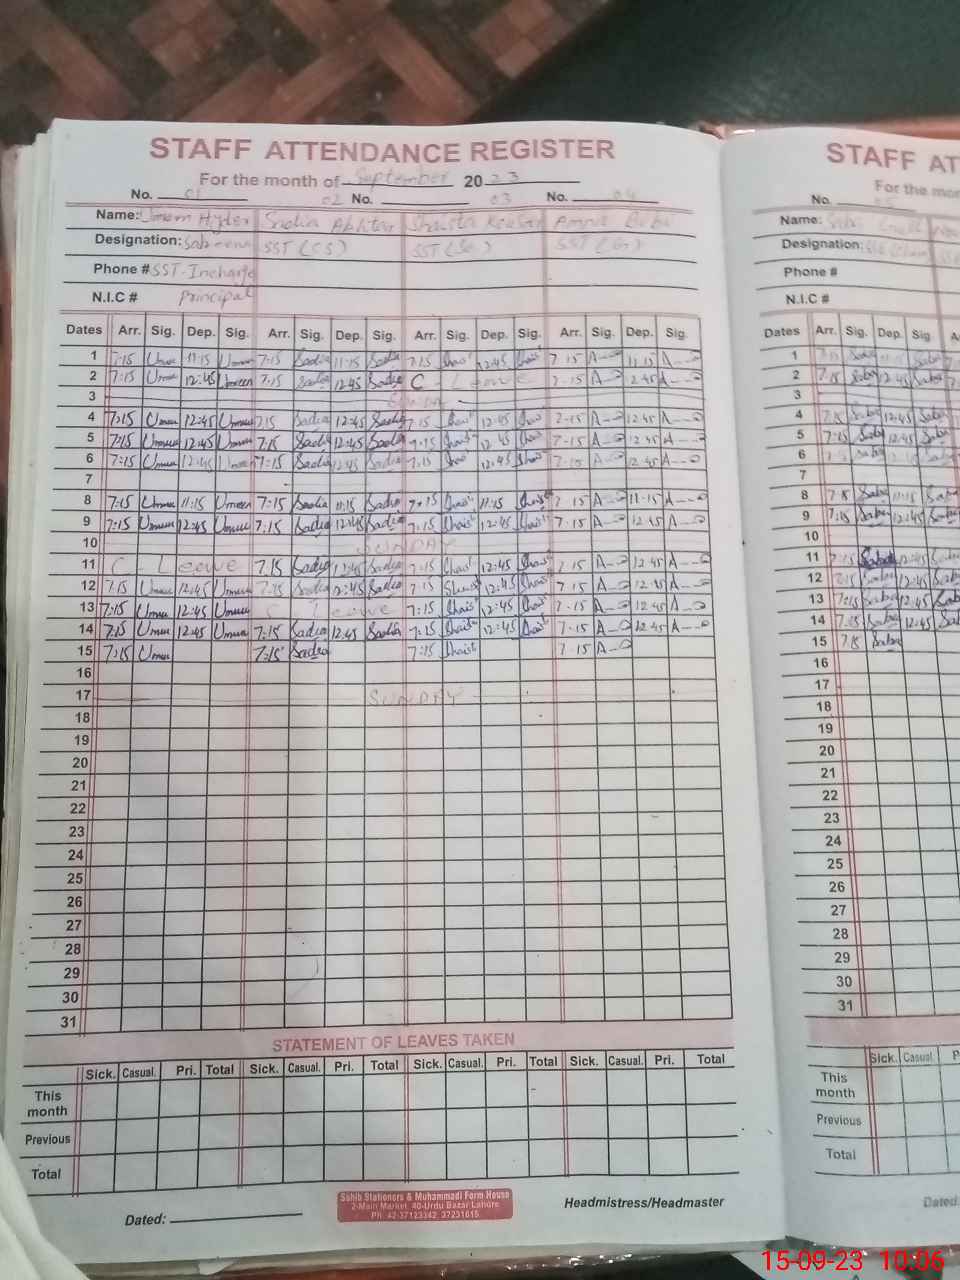 STAFF ATTENDANCE REGISTER
For the month of September 2023
No. 01 02 No. 03 No. 04
Name: Umem Hyder Sadia Akhtar Shaista Kausar Amna Bibi
Designation: Sabeena SST (CS) SST (Sc) SST (G)
Phone # SST-Incharge
N.I.C # Principal
Dates Arr. Sig. Dep. Sig. Arr. Sig. Dep. Sig. Arr. Sig. Dep. Sig. Arr. Sig. Dep. Sig.
1 7:15 Umem 11:15 Umem 7:15 Sadia 11:15 Sadia 7:15 Shais 12:45 Shais 7:15 A 11:15 A
2 7:15 Umem 12:45 Umem 7:15 Sadia 12:45 Sadia C-Leave 7:15 A 12:45 A
3
4 7:15 Umem 12:45 Umem 7:15 Sadia 12:45 Sadia 7:15 Shais 12:45 Shais 7:15 A 12:45 A
5 7:15 Umem 12:45 Umem 7:15 Sadia 12:45 Sadia 7:15 Shais 12:45 Shais 7:15 A 12:45 A
6 7:15 Umem 12:45 Umem 7:15 Sadia 12:45 Sadia 7:15 Shais 12:45 Shais 7:15 A 12:45 A
7
8 7:15 Umem 11:15 Umem 7:15 Sadia 11:15 Sadia 7:15 Shais 11:15 Shais 7:15 A 11:15 A
9 7:15 Umem 12:45 Umem 7:15 Sadia 12:45 Sadia 7:15 Shais 12:45 Shais 7:15 A 12:45 A
10 SUNDAY
11 C-Leave 7:15 Sadia 12:45 Sadia 7:15 Shais 12:45 Shais 7:15 A 12:45 A
12 7:15 Umem 12:45 Umem 7:15 Sadia 12:45 Sadia 7:15 Shais 12:45 Shais 7:15 A 12:45 A
13 7:15 Umem 12:45 Umem C Leave 7:15 Shais 12:45 Shais 7:15 A 12:45 A
14 7:15 Umem 12:45 Umem 7:15 Sadia 12:45 Sadia 7:15 Shais 12:45 Shais 7:15 A 12:45 A
15 7:15 Umem 7:15 Sadia 7:15 Shais 7:15 A
16
17 SUNDAY
18
19
20
21
22
23
24
25
26
27
28
29
30
31
STATEMENT OF LEAVES TAKEN
Sick. Casual. Pri. Total Sick. Casual. Pri. Total Sick. Casual. Pri. Total Sick. Casual. Pri. Total
This month
Previous
Total
Sahib Stationers & Muhammadi Form House
2-Main Market, 40-Urdu Bazar Lahore
PH: 42-37123342, 37231615
Dated: Headmistress/Headmaster
STAFF AT
For the mo
No. 05
Name:
Designation:
Phone #
N.I.C #
Dates Arr. Sig. Dep. Sig.
1 7:15 Saba 11:15 Saba
2 7:15 Saba 12:45 Saba
3
4 7:15 Saba 12:45 Saba
5 7:15 Saba 12:45 Saba
6 7:15 Saba 12:45 Saba
7
8 7:15 Saba 11:15 Saba
9 7:15 Saba 12:45 Saba
10
11 7:15 Saba 12:45 Saba
12 7:15 Saba 12:45 Saba
13 7:15 Saba 12:45 Saba
14 7:15 Saba 12:45 Saba
15 7:15 Saba
16
17
18
19
20
21
22
23
24
25
26
27
28
29
30
31
Sick. Casual. P
This month
Previous
Total
Dated:
15-09-23 10:06